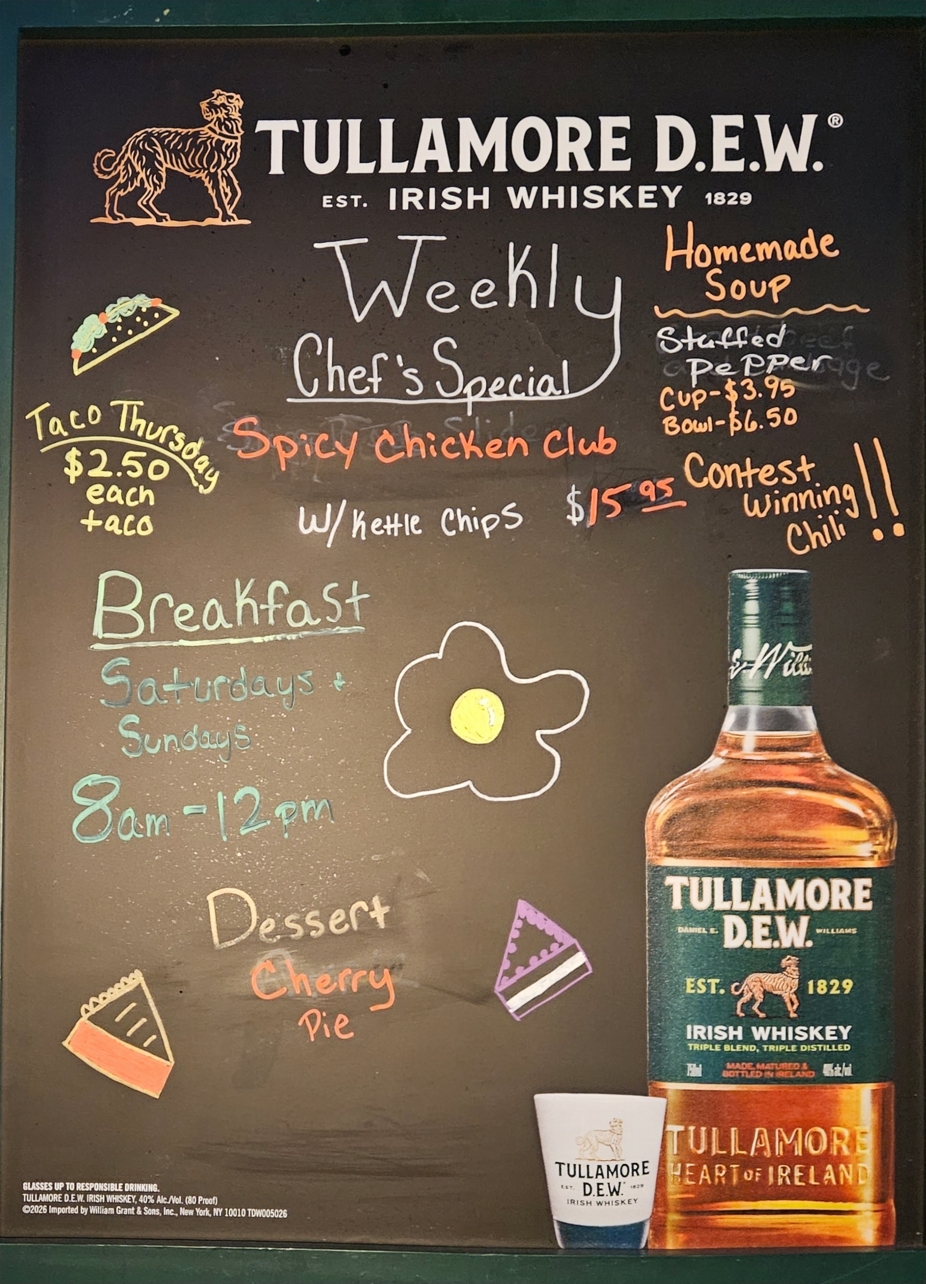 TULLAMORE D.E.W.®
EST. IRISH WHISKEY 1829
Weekly
Chef's Special
Spicy Chicken Club
W/ Kettle Chips $15.95
Homemade
Soup
Stuffed
Pepper
Cup-$3.95
Bowl-$6.50
Contest
Winning
Chili!!
Taco Thursday
$2.50
each
taco
Breakfast
Saturdays +
Sundays
8am-12pm
Dessert
Cherry
Pie
TULLAMORE
D.E.W.
DANIEL E. WILLIAMS
EST. 1829
IRISH WHISKEY
TRIPLE BLEND, TRIPLE DISTILLED
750ml MADE, MATURED & BOTTLED IN IRELAND 40% alc/vol.
TULLAMORE
HEART OF IRELAND
TULLAMORE
D.E.W.
EST. 1829
IRISH WHISKEY
GLASSES UP TO RESPONSIBLE DRINKING.
TULLAMORE D.E.W. IRISH WHISKEY, 40% Alc./Vol. (80 Proof)
©2026 Imported by William Grant & Sons, Inc., New York, NY 10010 TDW005026